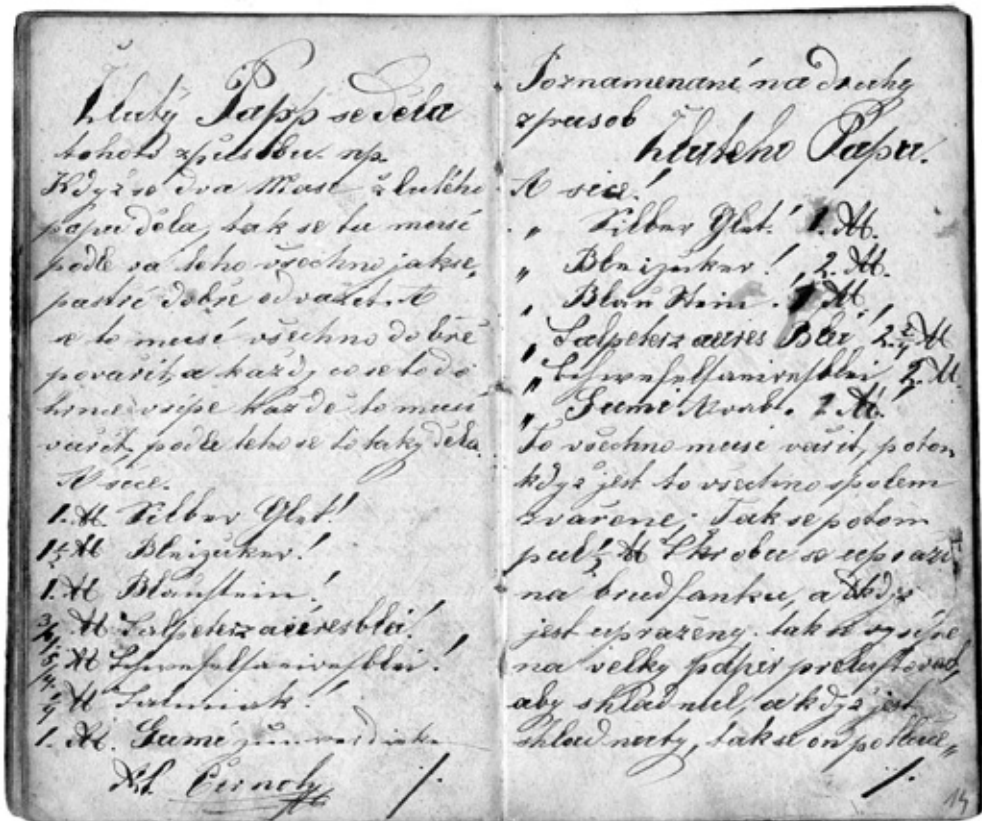 Žlutý Papp se děla
tohoto způsobu. np.
Když se dva Mase žlutého
papu děla, tak se tu musí
podle va toho všechno jakse
patří dobře odvažit. A
se to musí všechno dobře
povařit, a každy co se to do
hrnce vsype každé to musí
vařit, podle toho se to taky děla.
A sice.
1. ℔ Silber Glet!
1½ ℔ Bleizuker!
1. ℔ Blaustein!
℔ Salpeterzaueresblei!
℔ Schwefelsaueresblei!
¼ ℔ Salmiak!
1. ℔. Gumi zum
/.
Poznamenaní na druhy
zpusob
žluteho Papu.
A sice!
„ Silber Glet! 1. ℔.
„ Bleizuker! 2. ℔.
„ Blau Stein! 1 ℔.
„ Salpeterzaueres Blei! 2. ℔
„ Schwefelsaueresblei 2. ℔.
„ Gumi Arab. 2 ℔.
To všechno musi vařit, potom
když jest to všechno spolem
zvařene; Tak se potom
pul ½ ℔ Škrobu se upraži
na brudfanku, a když
jest upraženy, tak se vysype
na velky papir
aby shladnul, a když jest
shladnuty, tak se on potluče„
/.
14